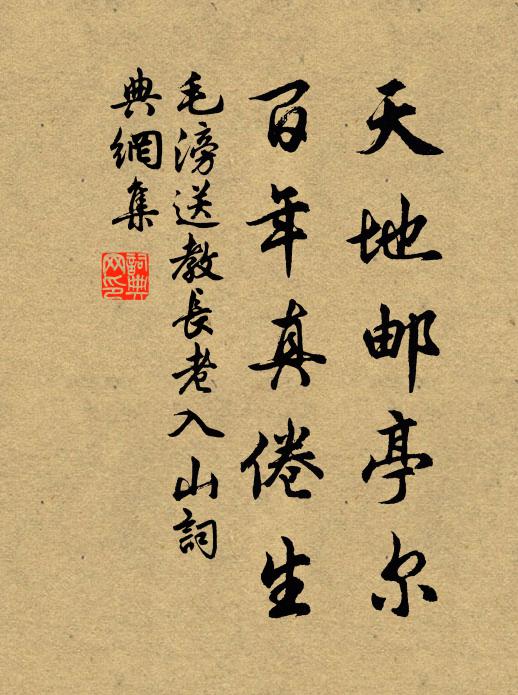 天地邮亭尔
百年真倦生
毛滂送教長老入山詞
典網集
詞典
网印